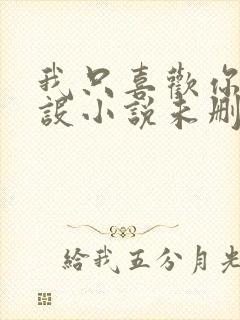 我只喜歡你
設小說未刪
給我五分月光